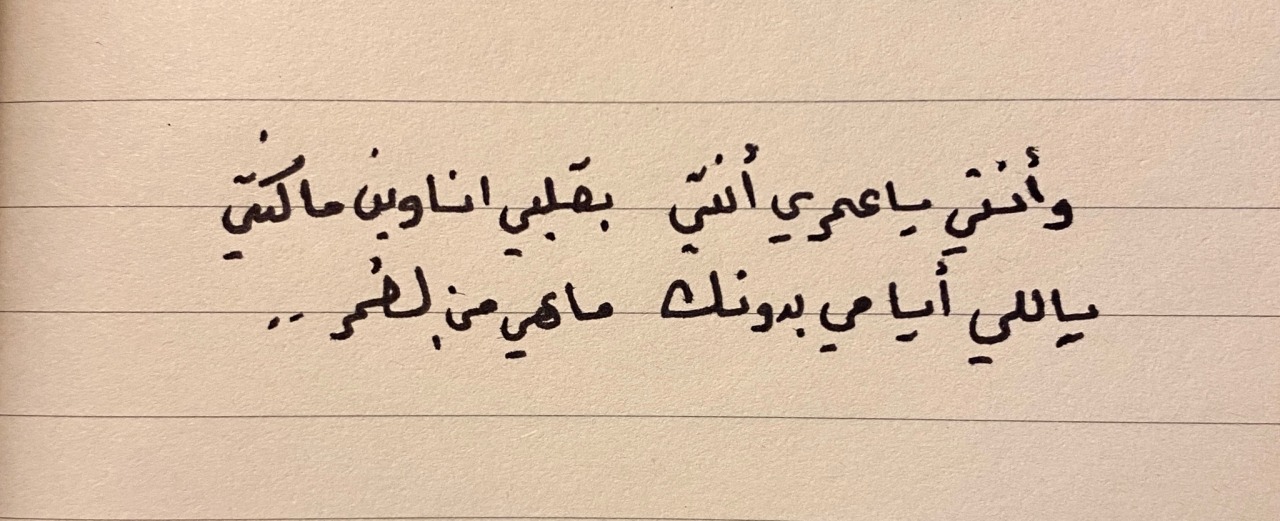 وأنتي ياعمري أنتي بقلبي انا وين ما كنتي
ياللي أيامي بدونك ماهي من لعمر ..